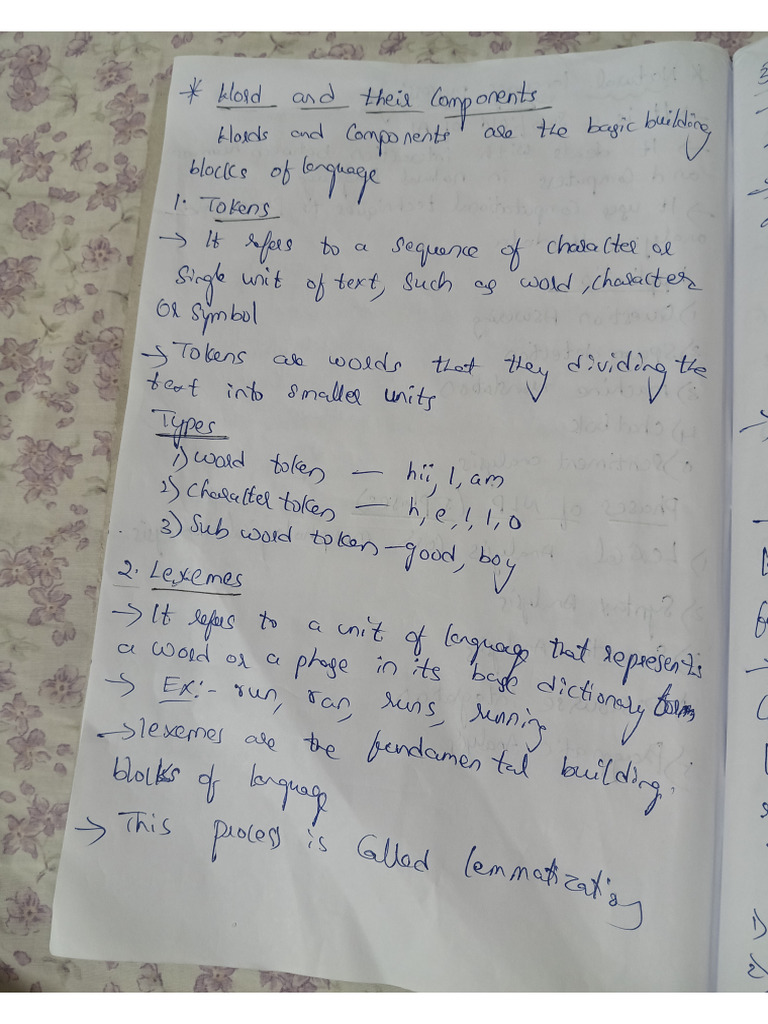 * Word and their Components
Words and Components are the basic building
blocks of language
1. Tokens
→ It refers to a sequence of character or
single unit of text, such as word, character
or symbol
→ Tokens are words that they dividing the
text into smaller units
Types
1) word token — hii, I, am
2) character token — h, e, l, l, o
3) Sub word token — good, boy
2. Lexemes
→ It refers to a unit of language that represents
a word or a phase in its base dictionary form
→ Ex:- run, ran, runs, running
→ lexemes are the fundamental building
blocks of language
→ This process is called lemmatization
1)
2)